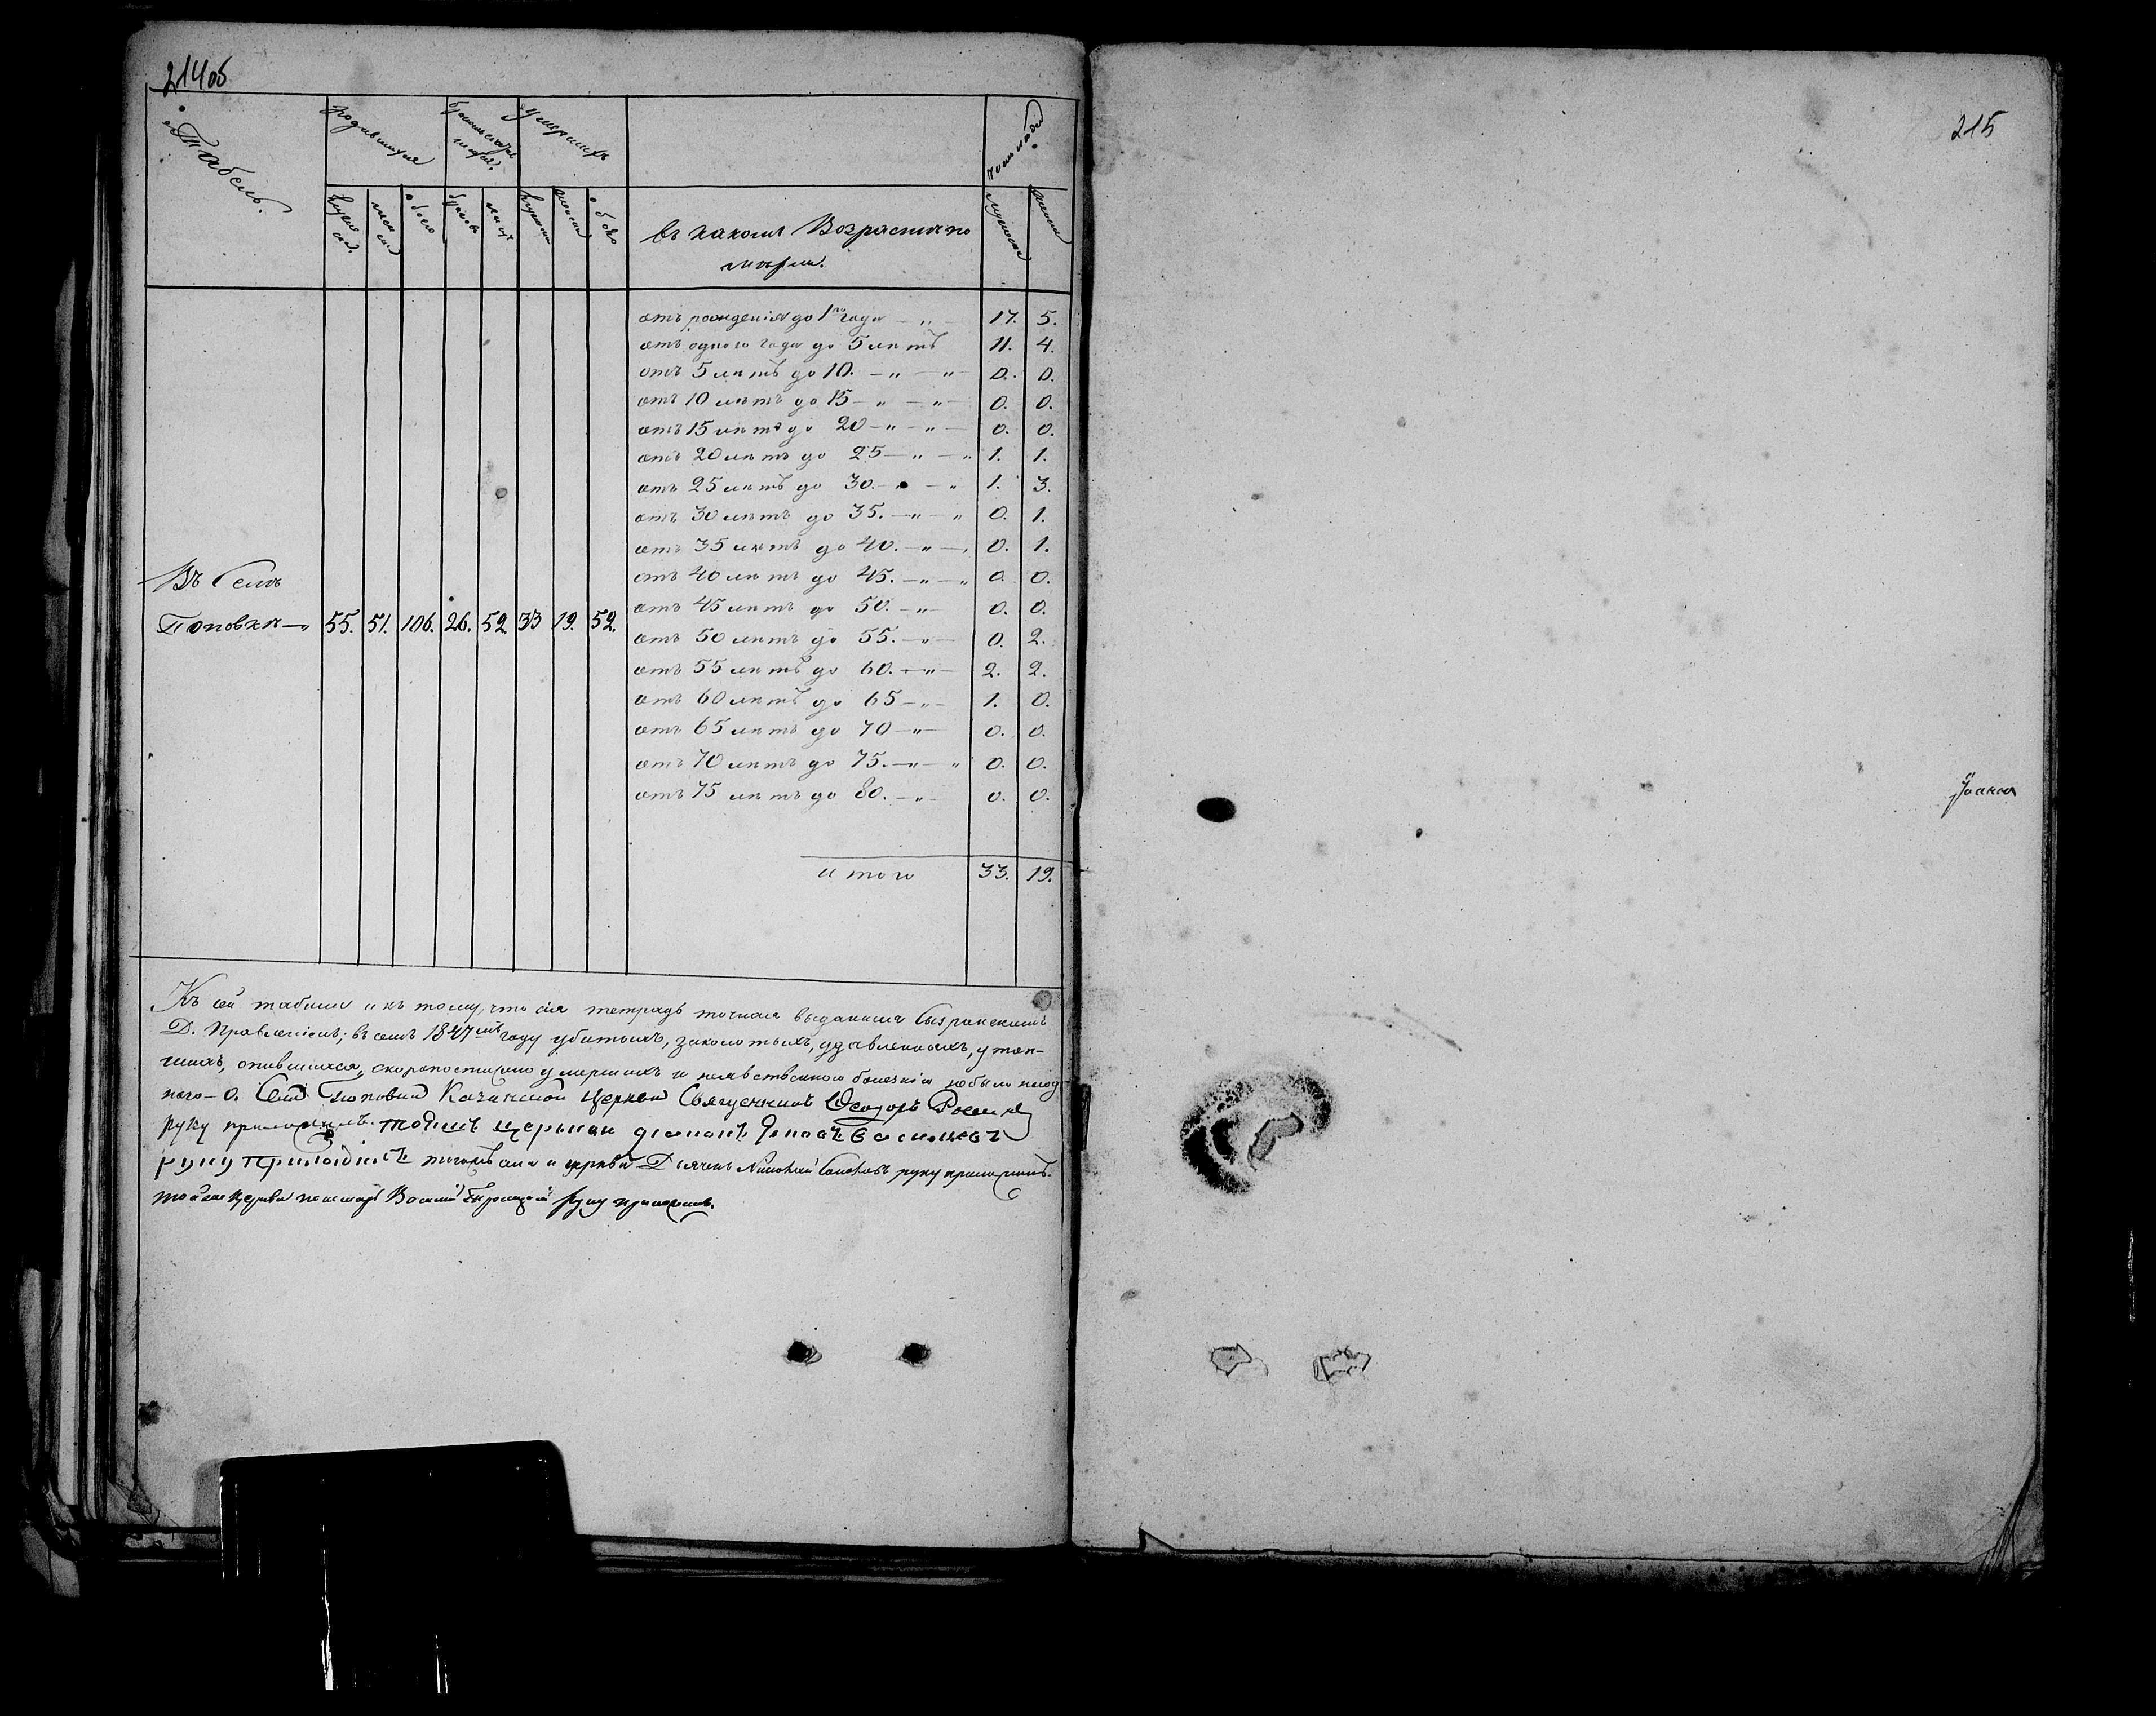 214об
Табель.
Родившихся
Бракомсочетавшихся.
Умершихъ
Число людей
мужеска.
женска
обоего
браковъ
лицъ
мужеска
женска
обоего
въ какомъ Возрастѣ по
мерли.
мужеска
женска
отъ рожденія до 1го года — " — 17. 5.
отъ одного года до 5 лѣтъ 11. 4.
отъ 5 лѣтъ до 10. — " — " — 0. 0.
отъ 10 лѣтъ до 15 — " — " — 0. 0.
отъ 15 лѣтъ до 20 — " — " — 0. 0.
отъ 20 лѣтъ до 25 — " — " 1. 1.
отъ 25 лѣтъ до 30. — " — " 1. 3.
отъ 30 лѣтъ до 35. — " — " 0. 1.
отъ 35 лѣтъ до 40. — " — " 0. 1.
отъ 40 лѣтъ до 45. — " — " 0. 0.
отъ 45 лѣтъ до 50. — " — 0. 0.
отъ 50 лѣтъ до 55. — " — 0. 2.
отъ 55 лѣтъ до 60. — " — 2. 2.
отъ 60 лѣтъ до 65 — " — 1. 0.
отъ 65 лѣтъ до 70 — " — 0. 0.
отъ 70 лѣтъ до 75. — " — " 0. 0.
отъ 75 лѣтъ до 80. — " — 0. 0.
Въ Селѣ
Поповкѣ — " 55. 51. 106. 26. 52. 33 19. 52.
итого 33. 19.
Къ сей табели и къ тому, что сія тетрадь точная выданная Сызранскимъ
Д. Правленіемъ; въ семъ 1847мъ году убитыхъ, заколотыхъ, удавленныхъ, утоп-
шихъ, опившихся, скоропостижно умершихъ и неявственною болезнію небыло ниод
наго — 0. Села Поповки Казанской Церкви Священникъ Ѳеодоръ
руку приложилъ. Тойжъ церькви діаконъ
руку приложилъ тогожъ села и церкви Дьячекъ Николай руку приложилъ.
той же Церкви пономарь Василій руку приложилъ.
215
Іоанна